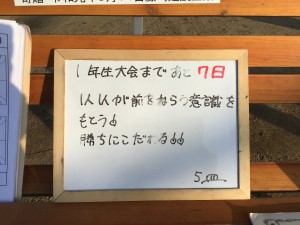 1年生大会まで あと 7日
1人1人が前をねらう意識を
もとう
勝ちにこだわる